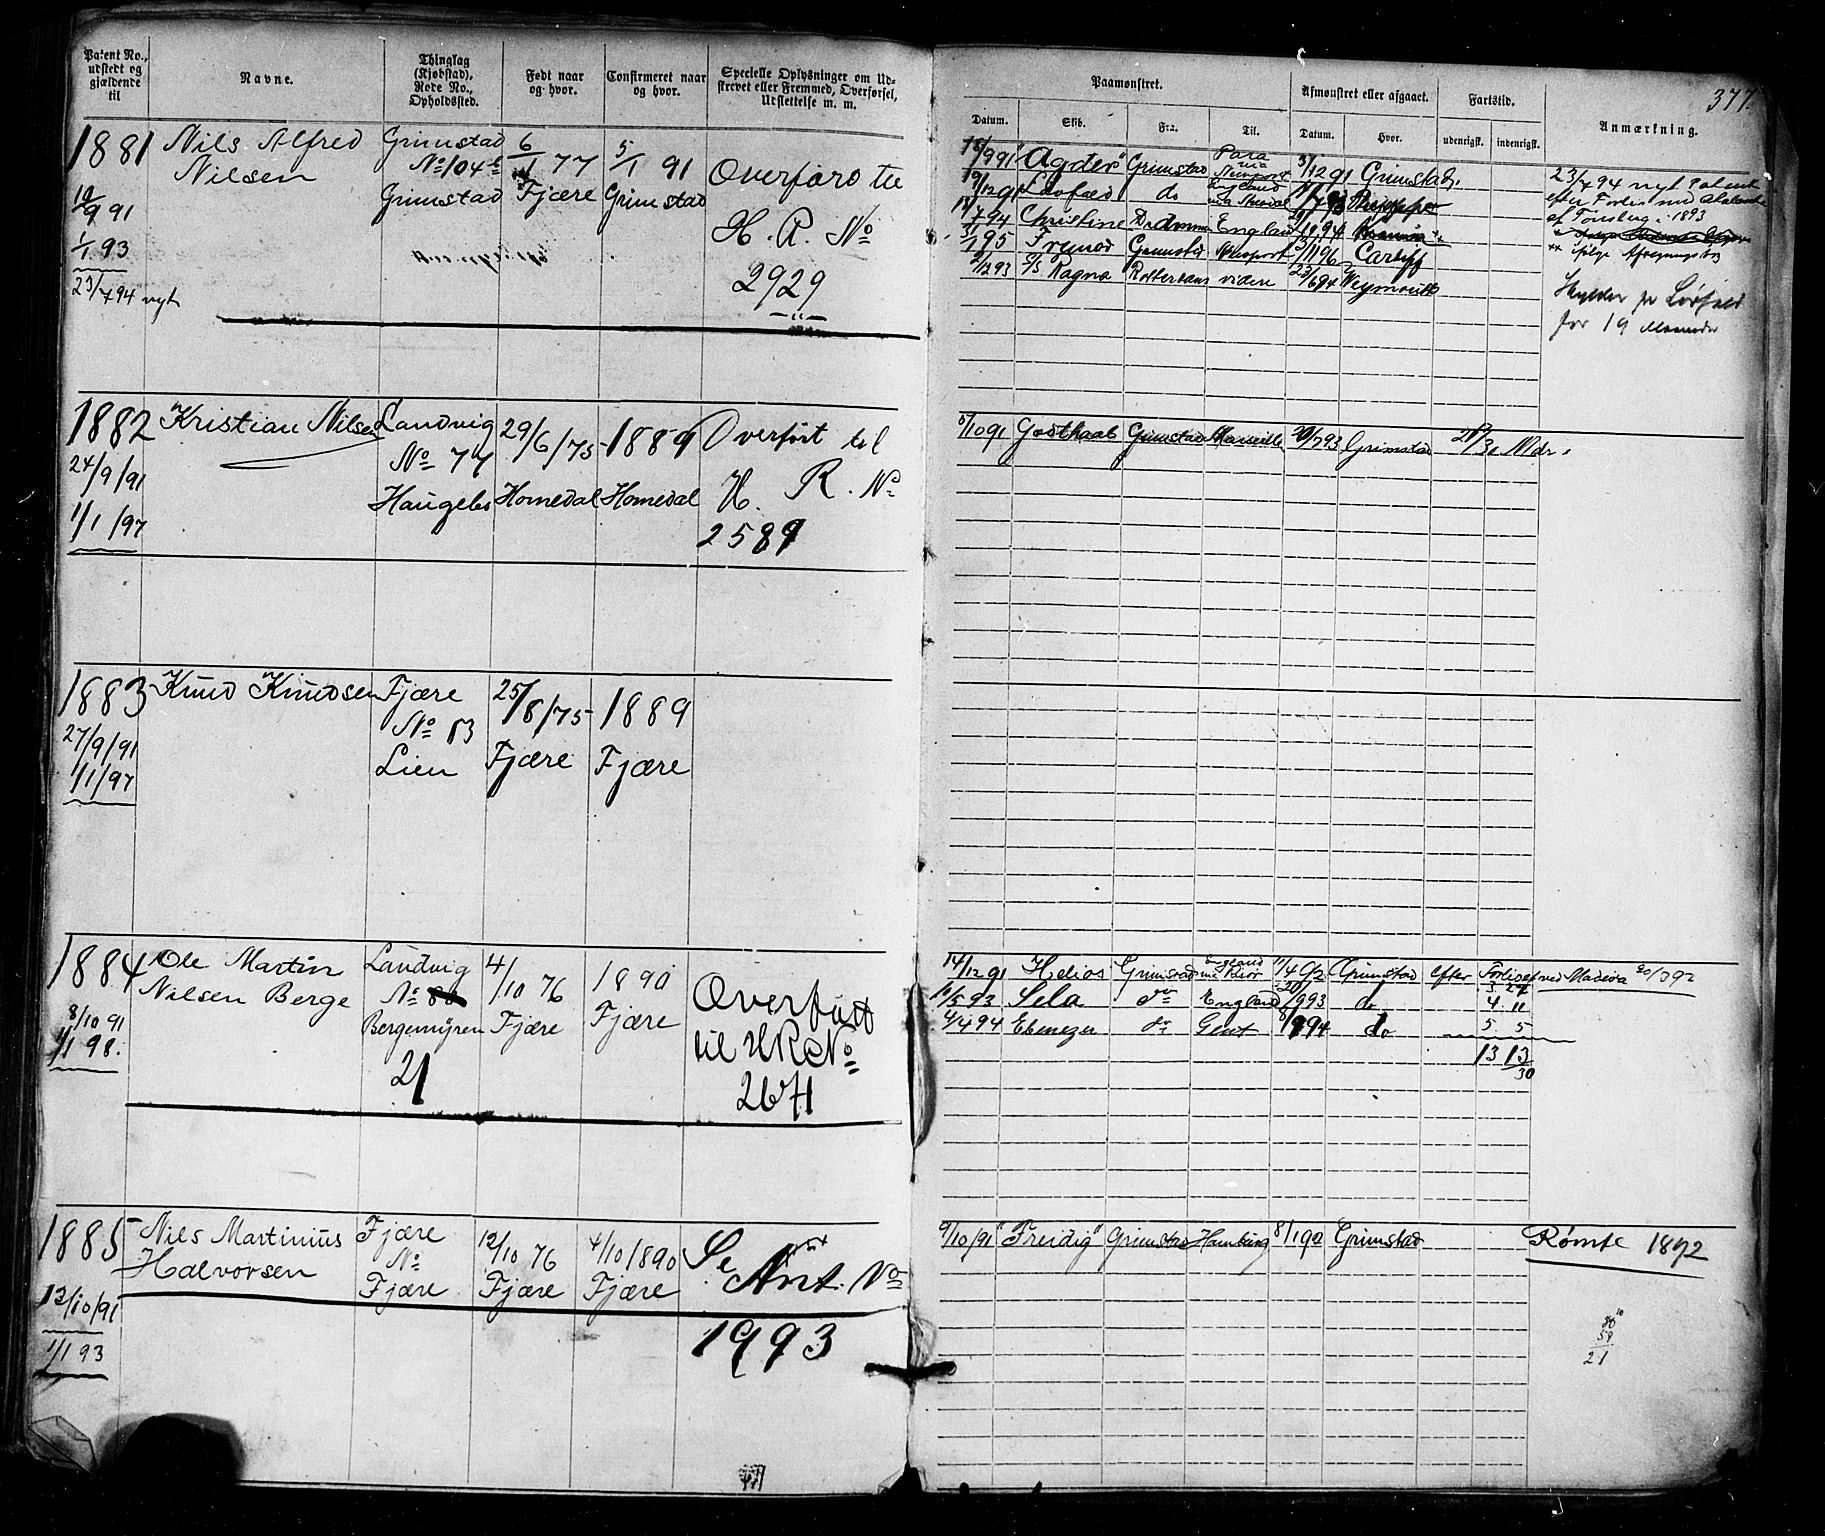 377.
Patent No., udstedt og gjældende til
Navne.
Thinglag (Kjøbstad), Rode No., Opholdssted.
Født naar og hvor.
Confirmeret naar og hvor.
Specielle Oplysninger om Udstrevet eller Fremmed, Overførsel, Udslettelse m. m.
Paamønstret.
Datum.
Skib.
Fra.
Til.
Afmønstret eller afgaaet.
Datum.
Hvor.
Fartstid.
udenrigsk.
indenrigsk.
Anmærkning.
1881
Nils Alfred
Nilsen
Grimstad
No 104 b
Grimstad
6/1 77
Fjære
5/1 91
Grimstad
Overført til
H. R. No
2929
9 91
1/1 93
23/7 94 nyt
991 "Agder" Grimstad 3/12 91 Grimstad.
19/12 91 Løvfald do
7 94 Christine England
1 95 Grimstad 96 Cardiff
12 93 S/S Ragna Rotterdam videre 23/6 94 Weymouth
23/7 94 nyt Patent
efter Forlis
af Tønsberg 1893
Hylder pr Løvfald
for 19 Maaneder
1882
Kristian Nilsen
Landvig
No 77
29/6/75
Homedal
1889
Homedal
Overført til
H. R. No
2589
24/9/91
1/1/97
5/10 91 Godthaab Grimstad Marseille 793 Grimstad 30 Mdr.
1883
Knud Knudsen
Fjære
No 13
Lien
25/8/75
Fjære
1889
Fjære
27/9/91
1/1/97
1884
Ole Martin
Nilsen Berge
Landvig
No
Bergemyren
21
4/10 76
Fjære
1890
Fjære
Overført
til HR No
2671
8/10 91
1/1 98.
14/12 91 Helios Grimstad England 4 92 Grimstad efter Forliset ved Madeira 30/3 92
11/5 93 Sela do England 993 do 4. 11
4/4 94 Ebenezer do Gent 94 do 5 5
13 13/30
1885
Nils Martinius
Halvorsen
Fjære
No
Fjære
12/10 76
Fjære
4/10/890
Fjære
Se Ant. No
1993
13/10/91
1/1 93
9/10/91 "Freidig" Grimstad Hamburg 8/1 92 Grimstad
Rømte 1892
80
59
21